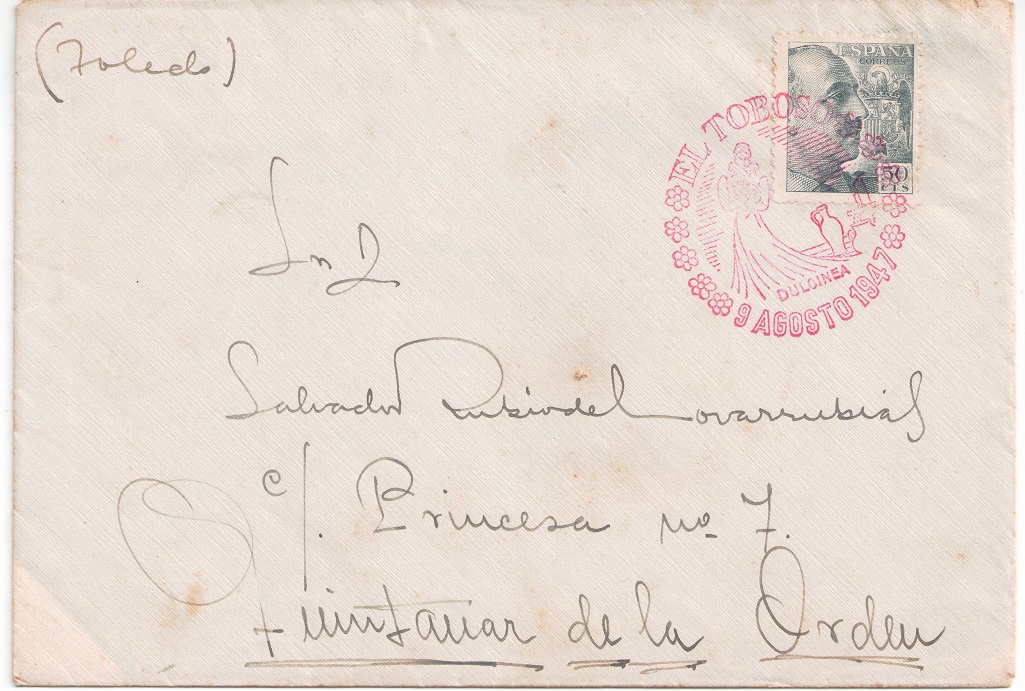 (Toledo)
ESPAÑA
CORREOS
50
CTS
EL TOBOSO
DULCINEA
9 AGOSTO 1947
Sr D
Salvador Rubio de Covarrubias
c/. Princesa nº 7.
Quintanar de la Orden